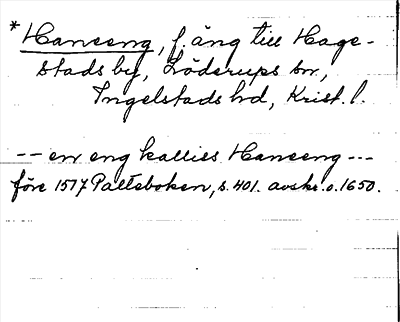 * Hanseng, f. äng till Hage-
stads by, Löderups sn,
Ingelstads hd, Krist. l.
-- en eng kalliss Hanseng ---
före 1517 Palteboken, s. 401. avskr. o. 1650.